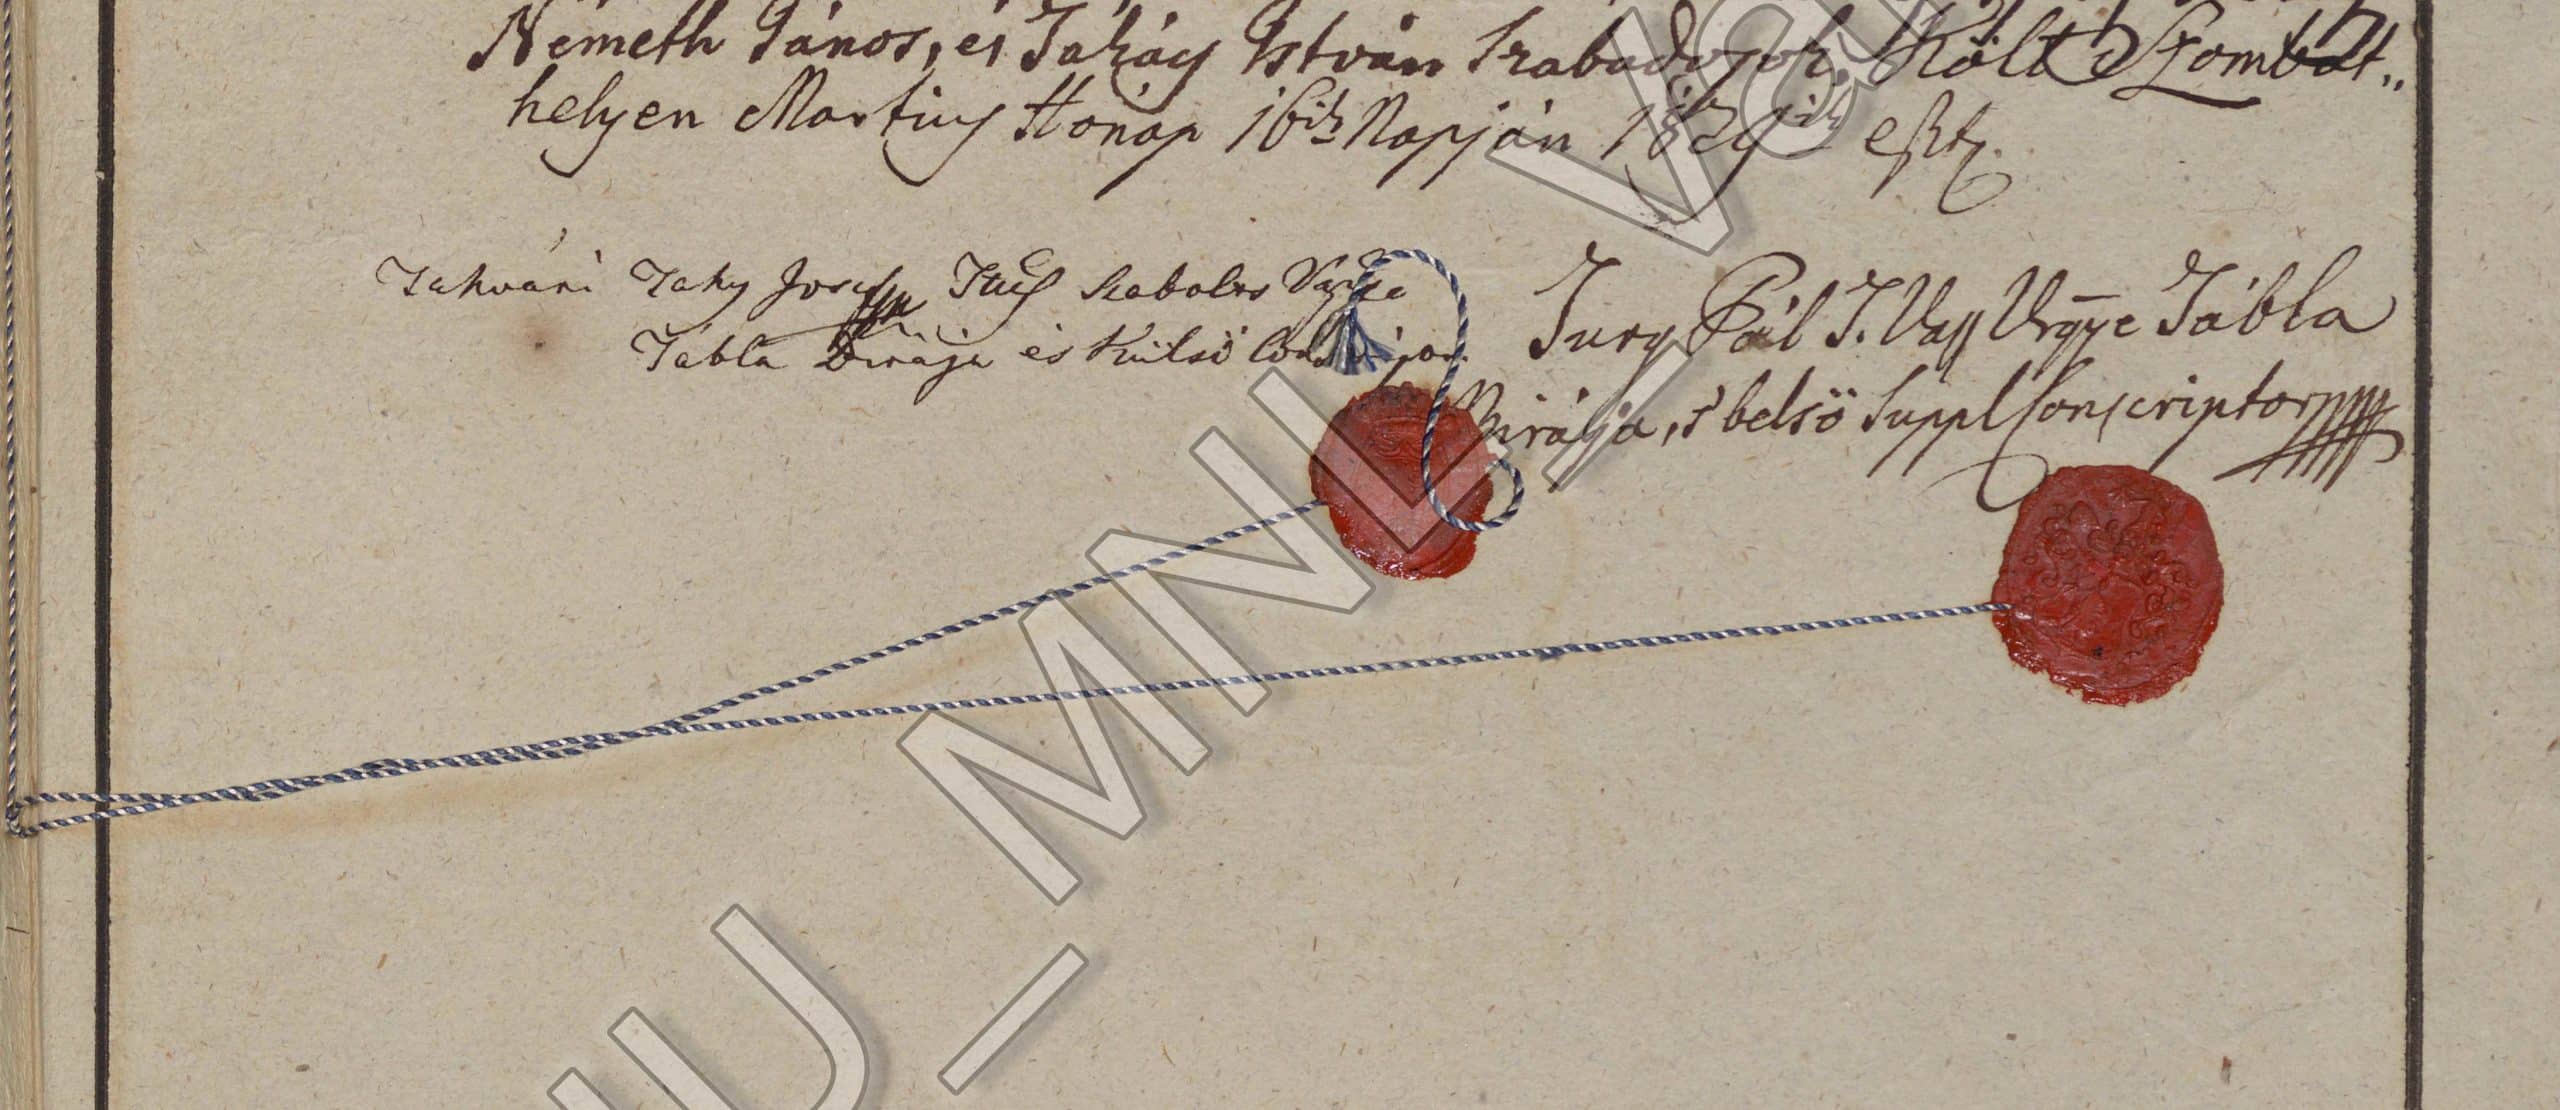 Németh János, és Takács István Szabadosok. Költ Szombat„
helyen Martius Hónap 16ik Napján 1829ik eszt.
Tahvári Tahy Josef Ttes Szabolcs Várgye
Tábla Birája és Külső
Jury Pál T. Vass Vrgye Tábla
Birája, 's belső Suppl Conscriptor
HU_MNL_Va